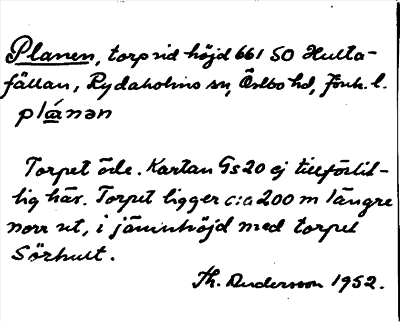 Planen, torp vid höjd 661 SO Hulta-
fällan, Rydaholms sn, Östbo hd, Jönk. l.
plánən
Torpet öde. Kartan Gs20 ej tillförlit-
lig här. Torpet ligger c:a 200 m längre
norr ut, i jämnhöjd med torpet
Sörhult.
Th. Andersson 1952.